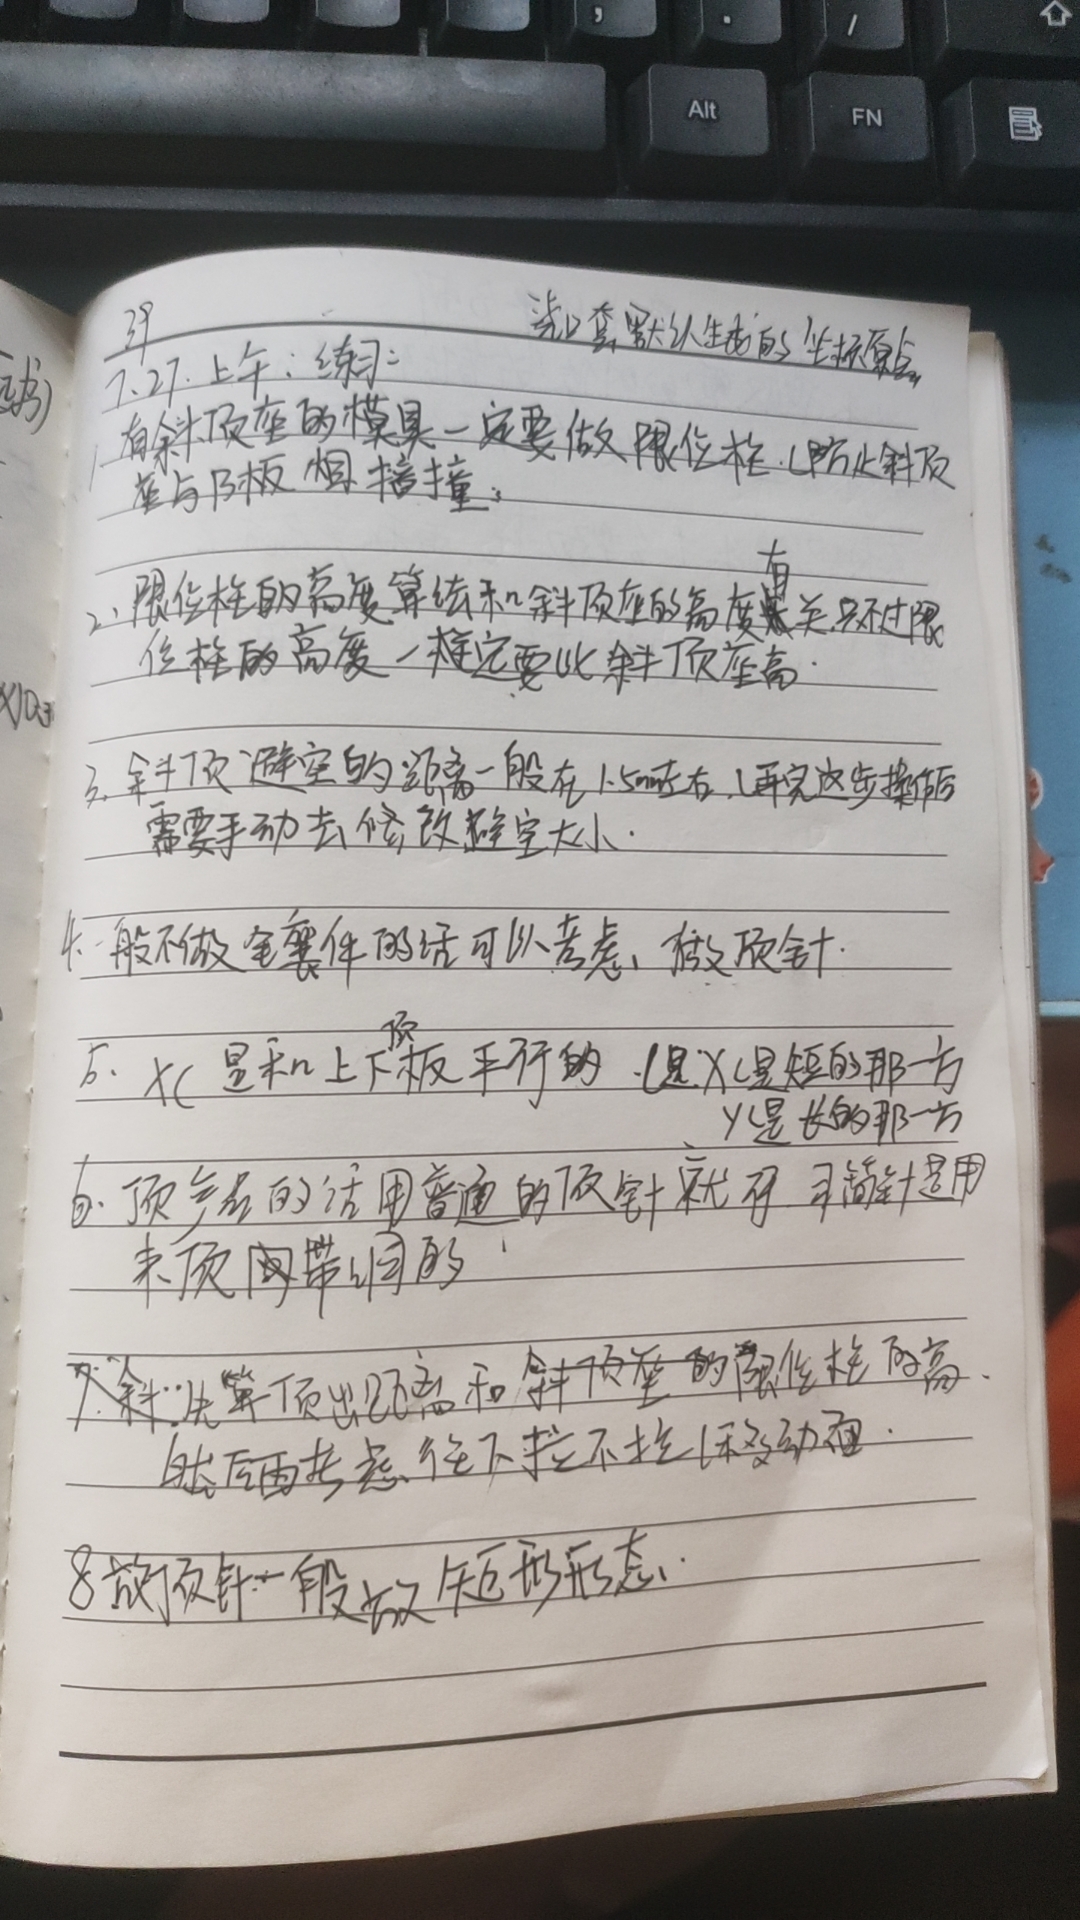 ,
.
/
Alt
FN
39
浇口套,默认生成的坐标原点
7.27.上午:练习:
1 有斜顶座的模具一定要做限位柱.(防止斜顶
座与B板 撞;
有
2.限位柱的高度算法和斜顶座的高度关,只不过限
位柱的高度一定要比斜顶座高.
3.斜顶避空的距离一般在1.5mm左右,(再完这步操作后
需要手动去修改避空大小.
4.一般不做全镶件的话可以考虑、做顶针.
顶
5. XC是和上下板平行的.(是XC是短的那一方
YC是长的那一方
6.顶产品的话用普通的顶针就可 司筒针是用
来顶 的
7.斜 算顶出距离和斜顶座的限位柱的高.
然后再考虑,往下拉不拉(移动面.
8 放顶针一般放矩形形态.